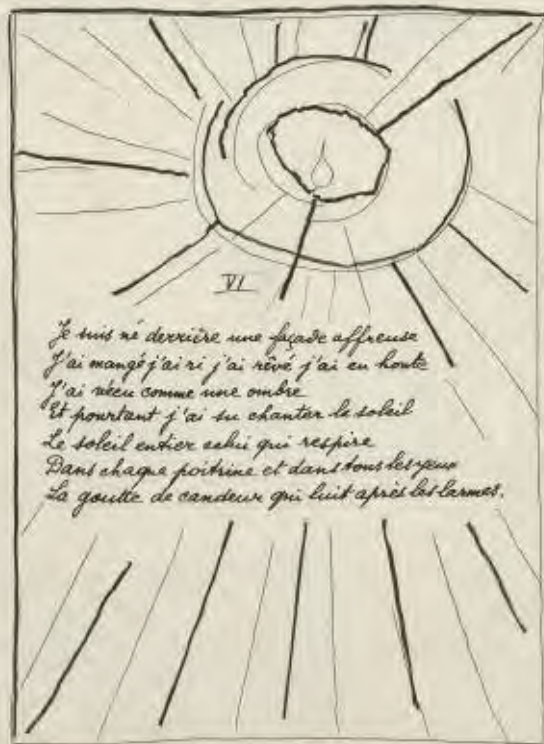 VI
Je suis né derrière une façade affreuse
J'ai mangé j'ai ri j'ai rêvé j'ai eu honte
J'ai vécu comme une ombre
Et pourtant j'ai su chanter le soleil
Le soleil entier celui qui respire
Dans chaque poitrine et dans tous les yeux
La goutte de candeur qui luit après les larmes.